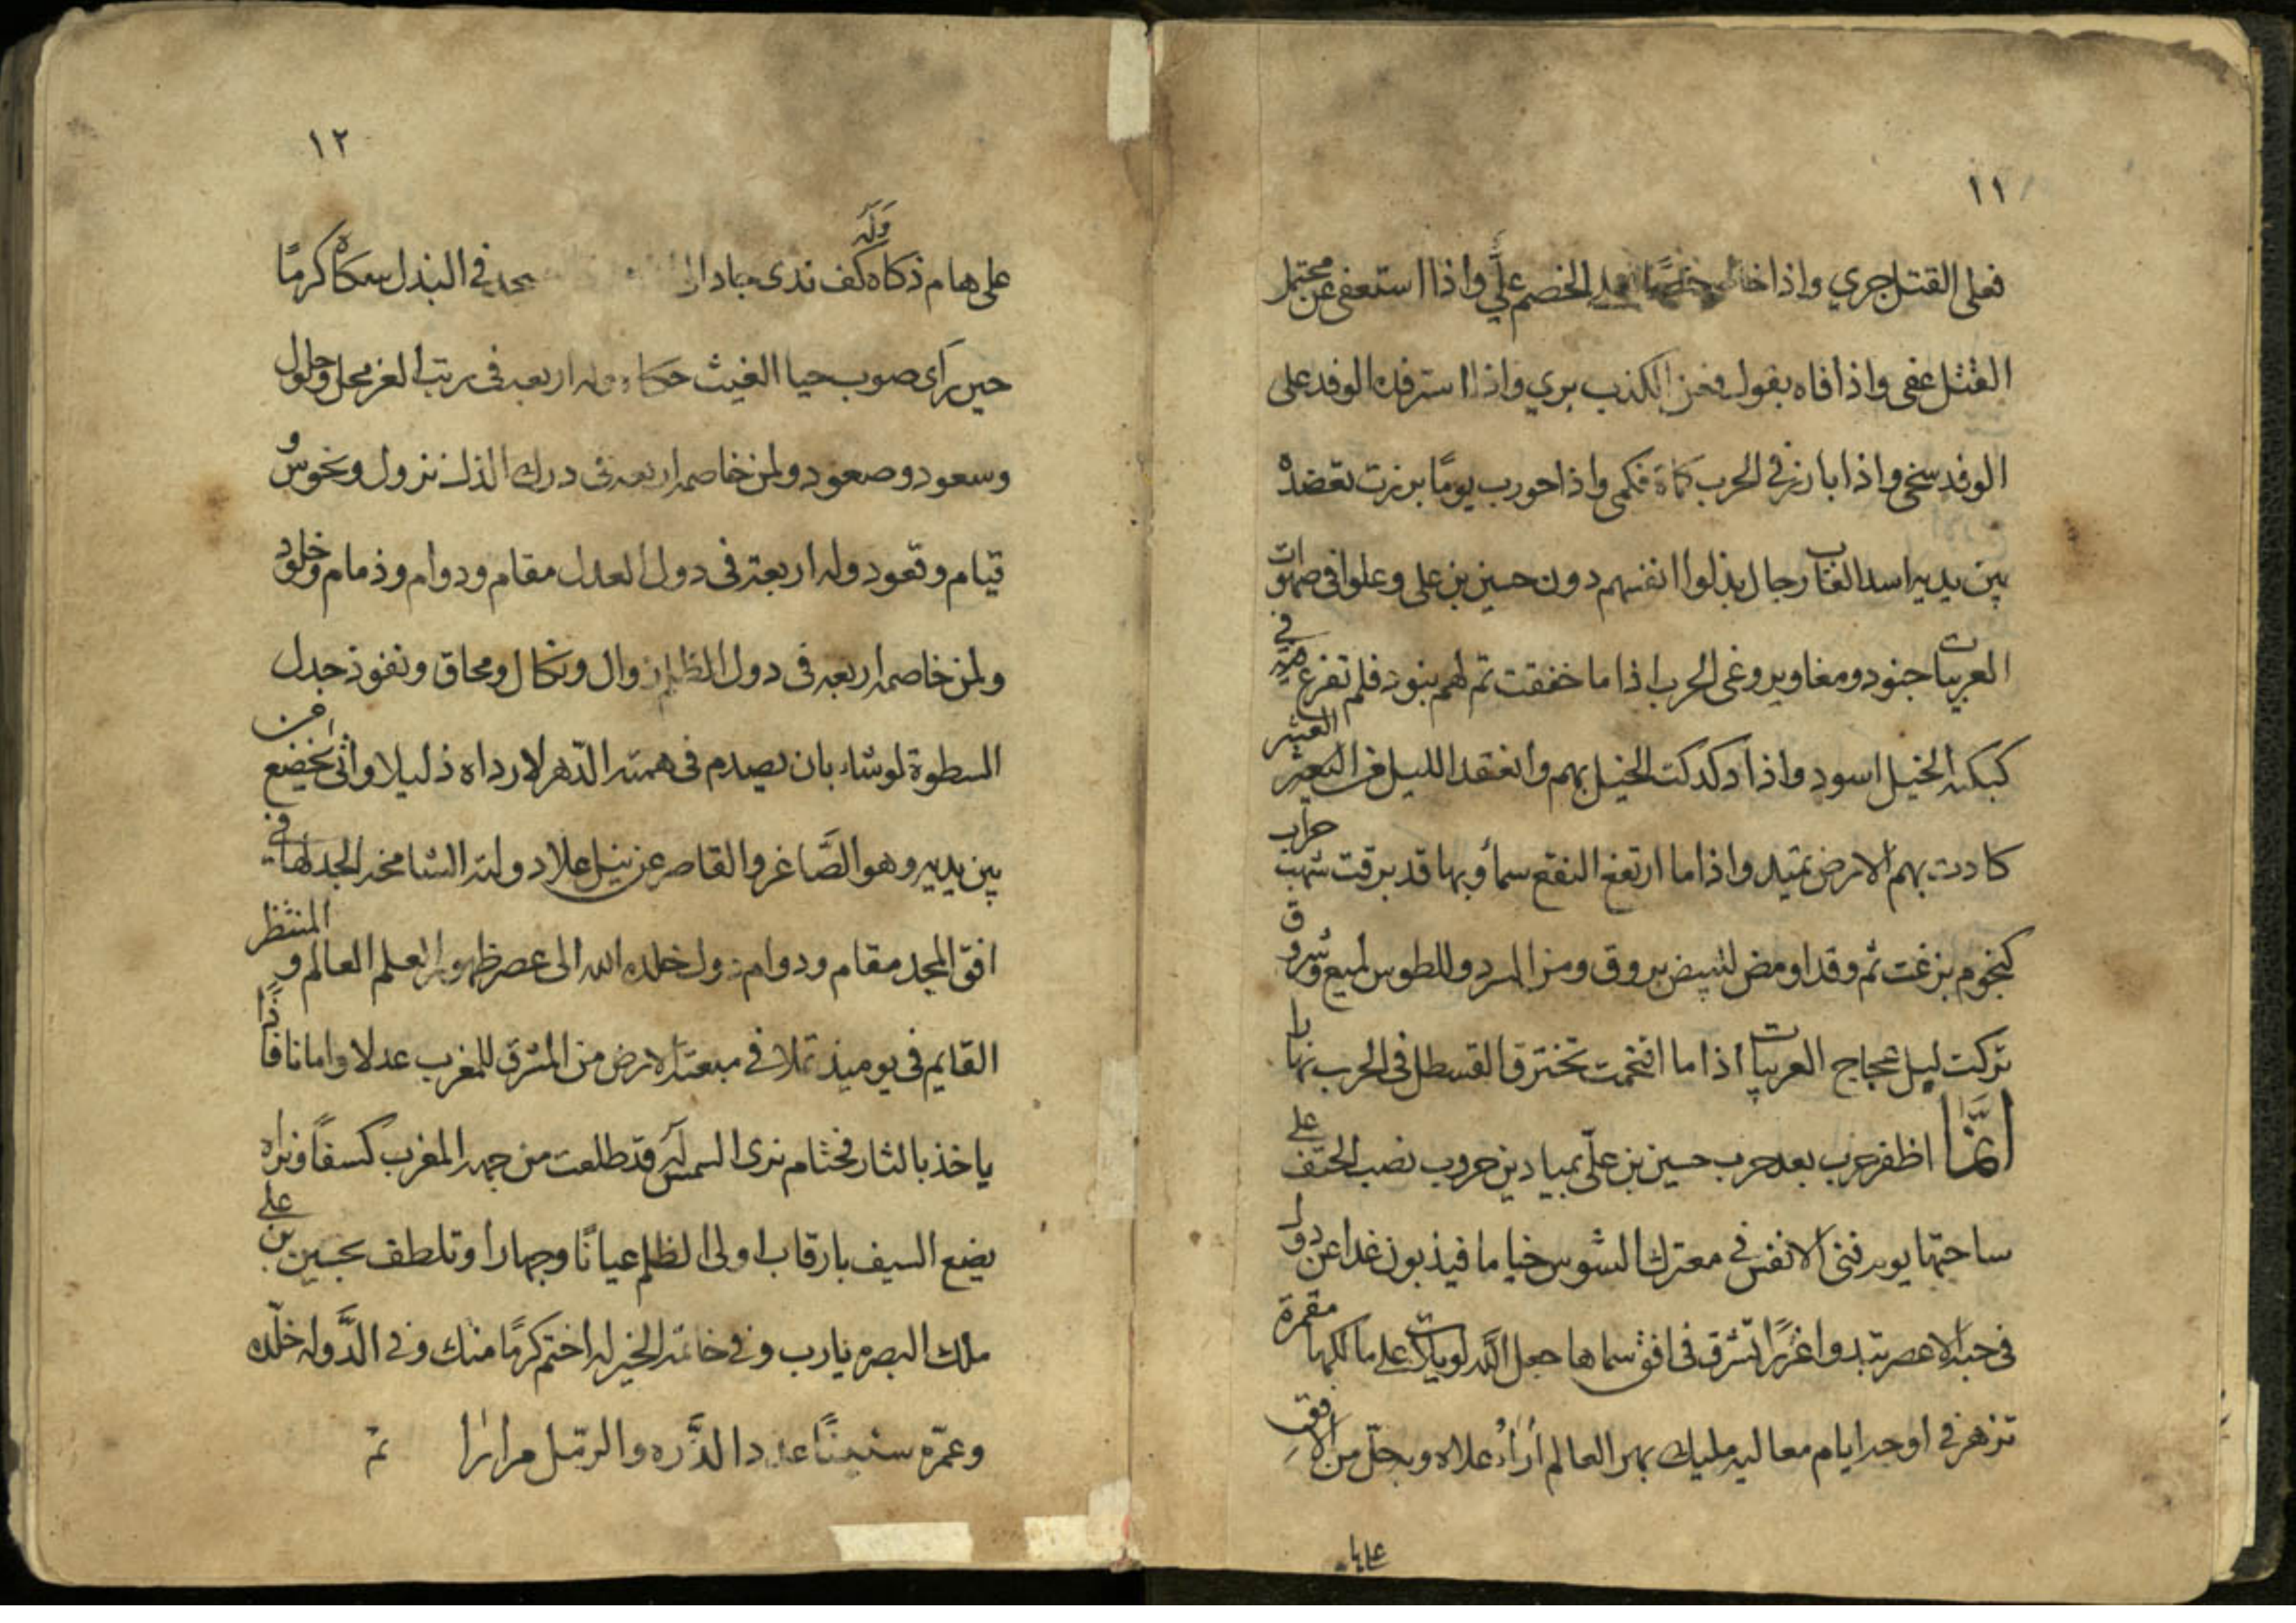 ١١
فعلى القتل جري واذا خصمًا الخصم عليّ واذا استعفى عن محتمل
القتل عفى واذا فاه بقول فعن الكذب بري واذا استرفده الوفد على
الوفد سخي واذا بارز في الحرب كماة فكمي واذا حورب يومًا برزت تعضده
بين يديه اسد الغاب رجال بذلوا انفسهم دون حسين بن علي وعلوا في صهوات
العربيات جنود ومغاوير وغى الحرب اذا ما خفقت ثم لهم بنود فلم تفزع في
كبكبه الخيل اسود واذا دكدكت الخيل بهم وانعقد الليل من العثير
كادت بهم الارض تميد واذا ما ارتفع النقع سمأ وبها قد برقت شهب حراب
كنجوم بزغت ثم وقد اومض للبيض بروق ومن السرد وللطوس لميع وشروق
تركت ليل عجاج العربيات اذا ما اقتحمت تخترق القسطل في الحرب نهارا
ايّما اظفر حزب بعد حرب حسين بن عليّ بميادين حروب نصب الحتف على
ساحتها يوم فنى الانفس في معترك الشوس خياما فيذبون غدا عن دول
في جبه الاعصر تبدوا غررًا تشرق في افق سماها جعل اللّه لويات على مالكها مقمرة
تزهر في اوجه ايام معاليه مليك بهر العالم أراءُ علاه وبجلّ من الافق
علا
١٢
على هام ذكاه وله كف ندى في البذل سمكاه كرمًا
حين رأى صوب حيا الغيث حكاه وله اربعه في رتب العز محل وحلول
وسعود وصعود ولمن خاصمه اربعه في درك الذل نزول ونحوس و
قيام وقعود وله اربعة في دول العدل مقام ودوام وذمام وخلود
ولمن خاصمه اربعه في دول الظلم زوال ونكال ومحاق ونفوذ جدل
السطوة لو شاء بان يصدم في همته الدّهر لارداه ذليلا واثنى يخضع من
بين يديه وهو الصَّاغر والقاصر عن نيل علا دولته الشامخه الجد لها في
افق المجد مقام ودوام دول خلده الله الى عصر ظهور العلم العالم والمنتظر
القايم في يوميذ تملا في مبعثه الارض من المشرق للمغرب عدلا وامانا فاذا
ياخذ بالثار فحثام نرى الشمس له قد طلعت من جهه المغرب كسفًا ونراه
يضع السيف بارقاب اولى الظلم عيانًا وجهارا وتلطف بحسين بن علي
ملك البصره يارب وفي خاتمه الخير له اختم كرمًا منك وفي الدَّوله خلّده
وعمّره سنينًا عدد الذَّره والرمل مرارا تم